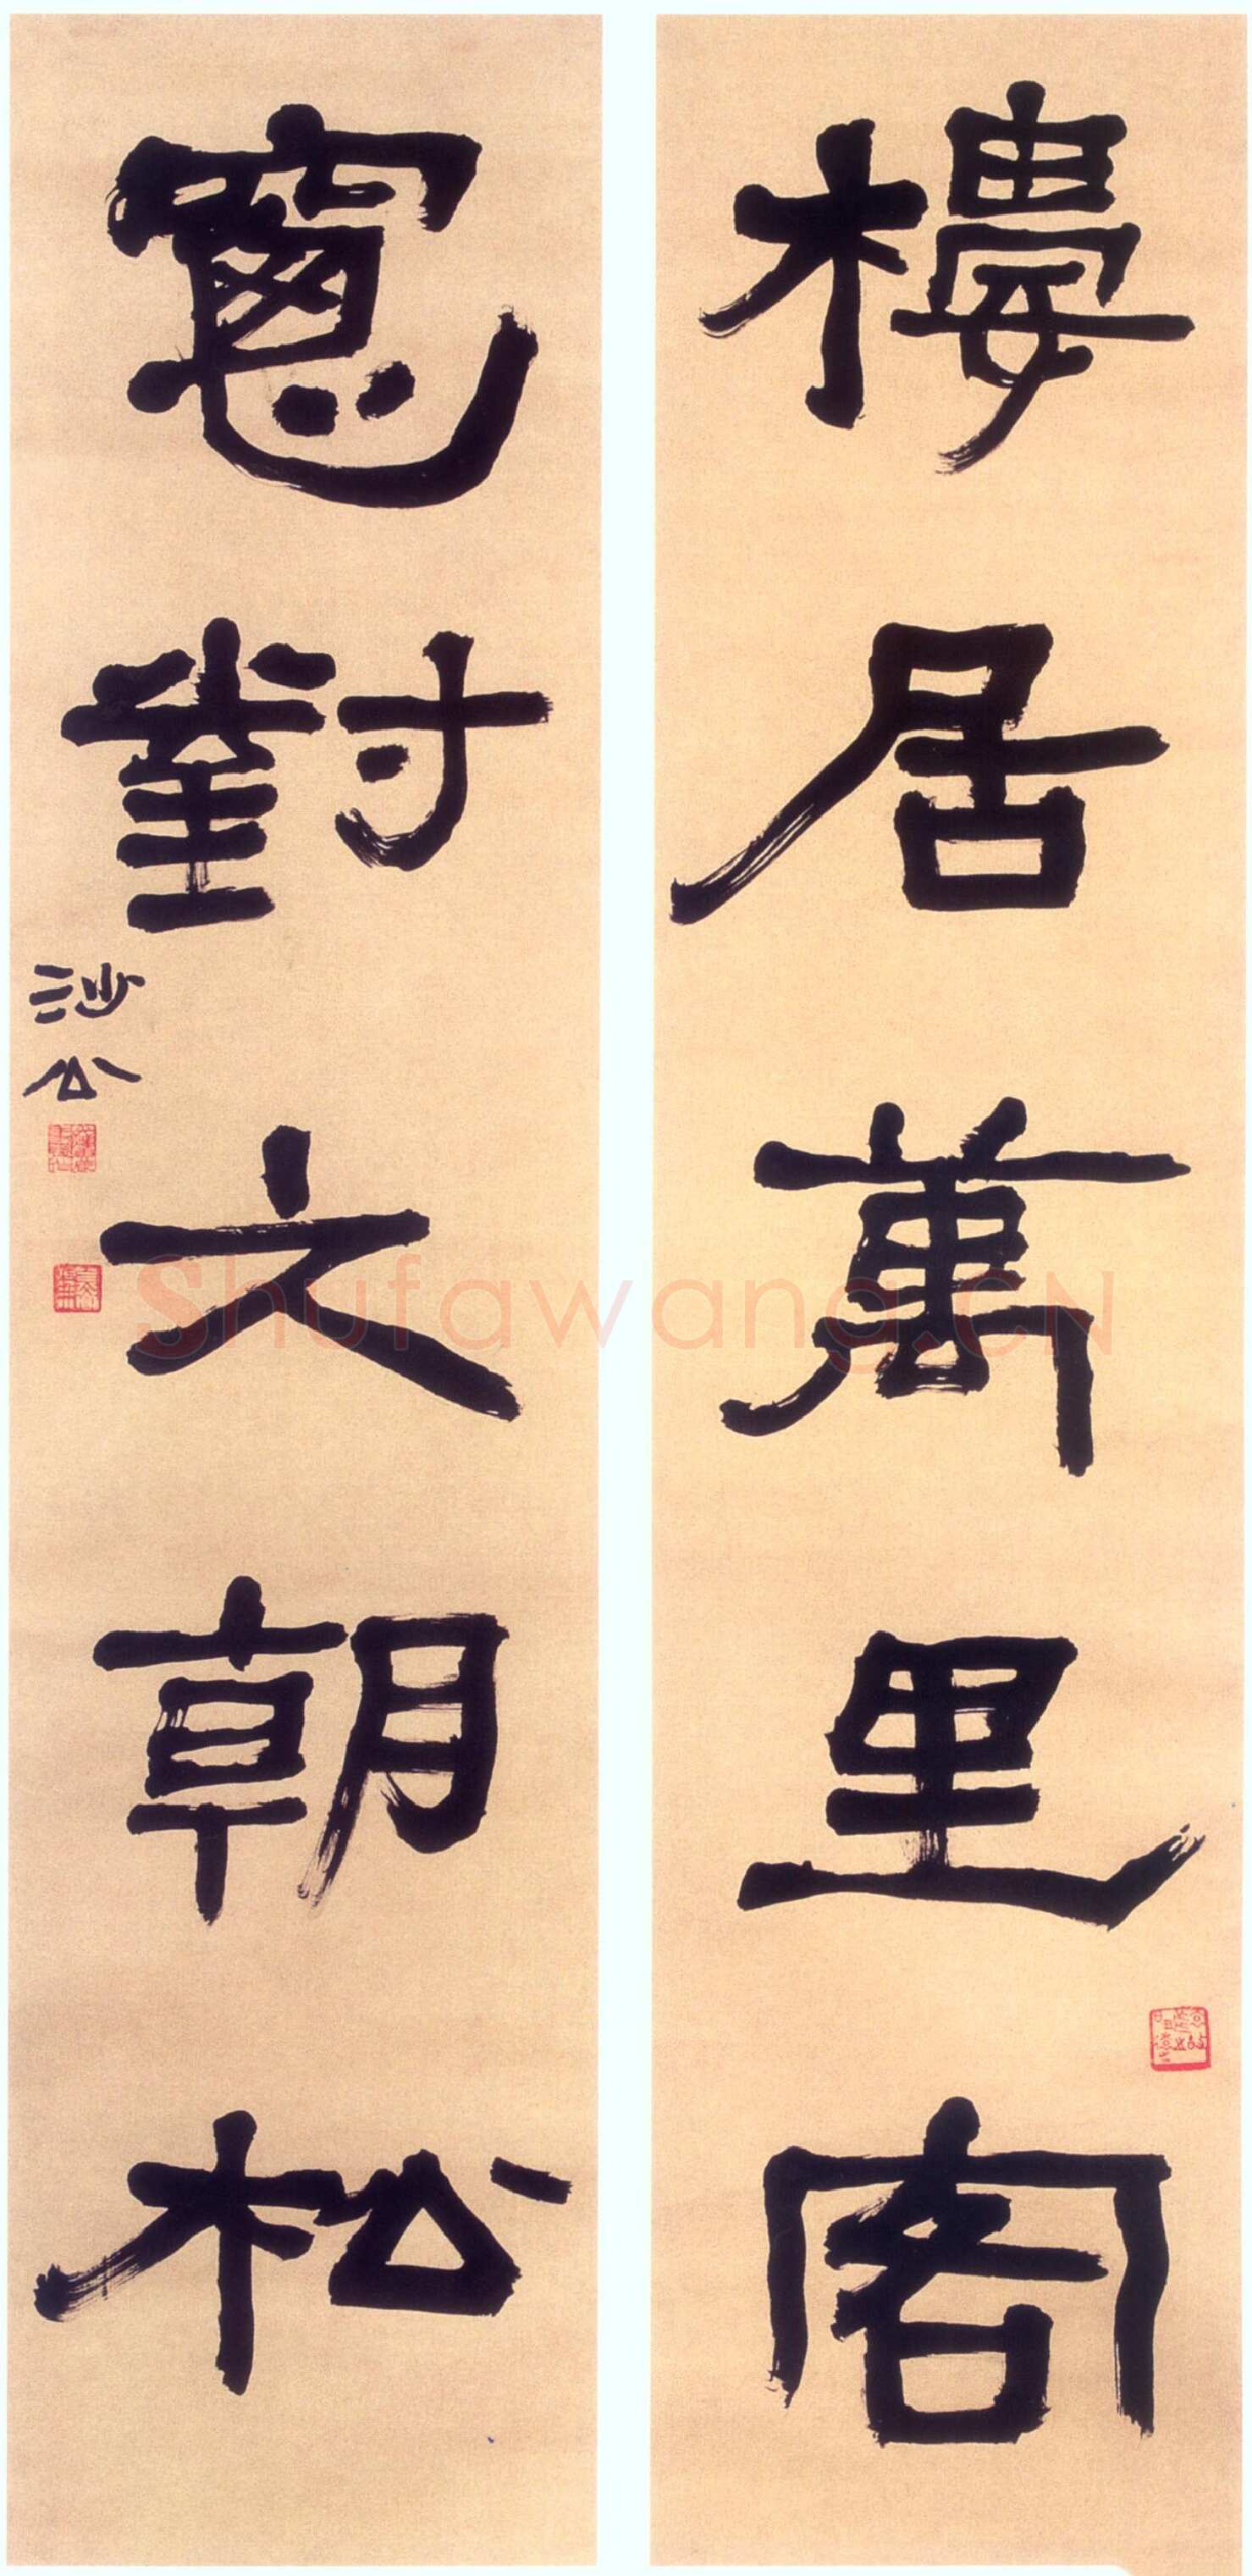 樓居萬里客
窻對六朝松
沙公
Shufawang.CN